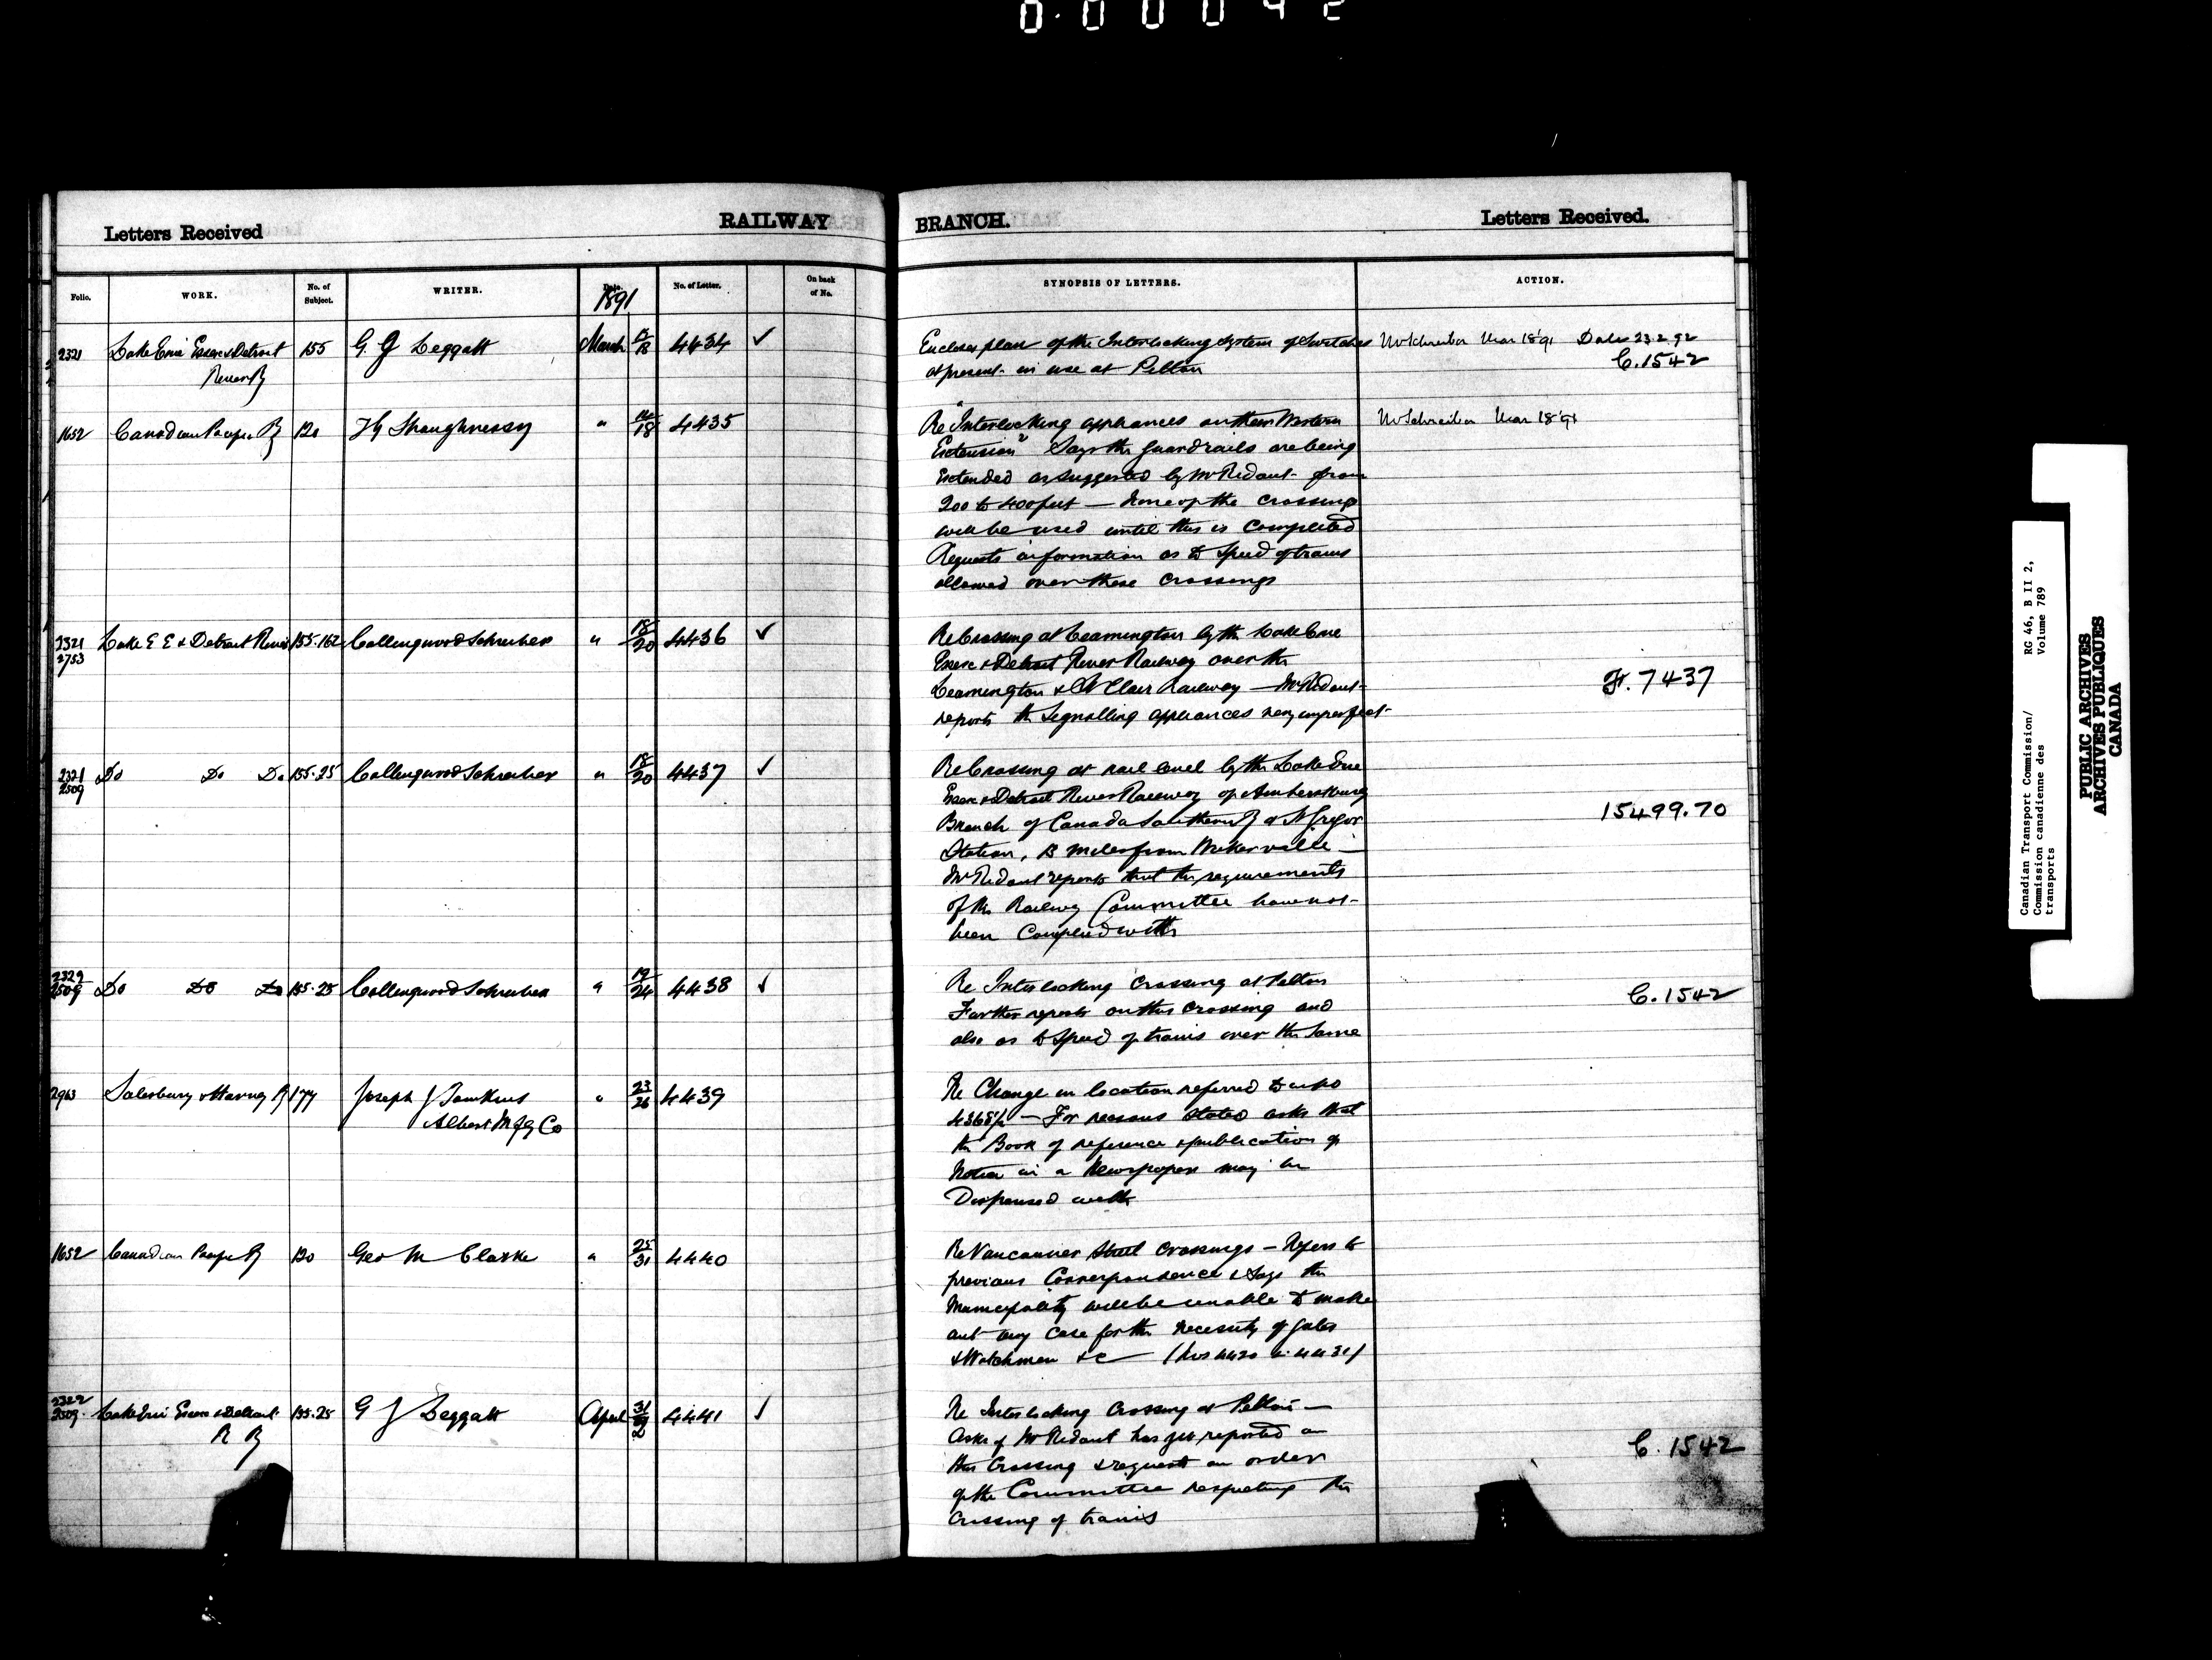 0.00042
Letters Received
RAILWAY
BRANCH.
Letters Received.
Folio.
WORK.
No. of Subject.
WRITER.
Date.
1891
No. of Letter.
On back of No.
SYNOPSIS OF LETTERS.
ACTION.
2321 Lake Erie Essex & Detroit 155 G. J Leggatt March 18 4434 ✓
River Ry
Encloses plan of the Interlocking System of Switches
at present in use at Pelton
Mr Schreiber Mar 18 '91 23.2.92
C.1542
1652 Canadian Pacific Ry 120 TG Shaughnessy " 18 4435
Re "Interlocking appliances on their Western
Extension" Says the guardrails are being
Extended as suggested by Mr Ridout from
200 to 400 feet — None of the crossings
will be used until this is completed
Requests information as to speed of trains
allowed over these crossings
Mr Schreiber Mar 18 '91
2321
2753
Lake E E & Detroit River 155.162 Collingwood Schreiber " 18/20 4436 ✓
Re Crossing at Leamington by the Lake Erie
Essex & Detroit River Railway over the
Leamington & St Clair Railway — Mr Ridout
reports the Signalling appliances very imperfect
Fr. 7437
2321
2509
Do Do Do 155.25 Collingwood Schreiber " 18/20 4437 ✓
Re Crossing at rail level by the Lake Erie
Essex & Detroit River Railway of Amherstburg
Branch of Canada Southern Ry at McGregor
Station, 13 miles from Walkerville —
Mr Ridout reports that the requirements
of the Railway Committee have not
been complied with
15499.70
2322
2509
Do Do Do 155.25 Collingwood Schreiber " 19/24 4438 ✓
Re Interlocking Crossing at Pelton
Further reports on this crossing and
also as to Speed of trains over the same
C.1542
2963 Salisbury & Harvey Ry 177 Joseph J Tomkins " 23/26 4439
Albert Mfg Co
Re Change in location referred to in No
4368½ — For reasons stated asks that
the Book of reference & publication of
Notice in a Newspaper may be
Dispensed with
1652 Canadian Pacific Ry 120 Geo M Clarke " 25/31 4440
Re Vancouver Street Crossings — Refers to
previous Correspondence & Says the
Municipality will be unable to make
out any case for the necessity of Gates
& Watchmen &c (Nos 4420 & 4431)
2322
2509
Lake Erie Essex & Detroit 155.25 G J Leggatt April 31/2 4441 ✓
R Ry
Re Interlocking Crossing at Pelton —
Asks if Mr Ridout has yet reported on
this Crossing & requests an order
of the Committee respecting the
crossing of trains
C.1542
Canadian Transport Commission/ RG 46, B II 2,
Commission canadienne des Volume 789
transports
PUBLIC ARCHIVES
ARCHIVES PUBLIQUES
CANADA